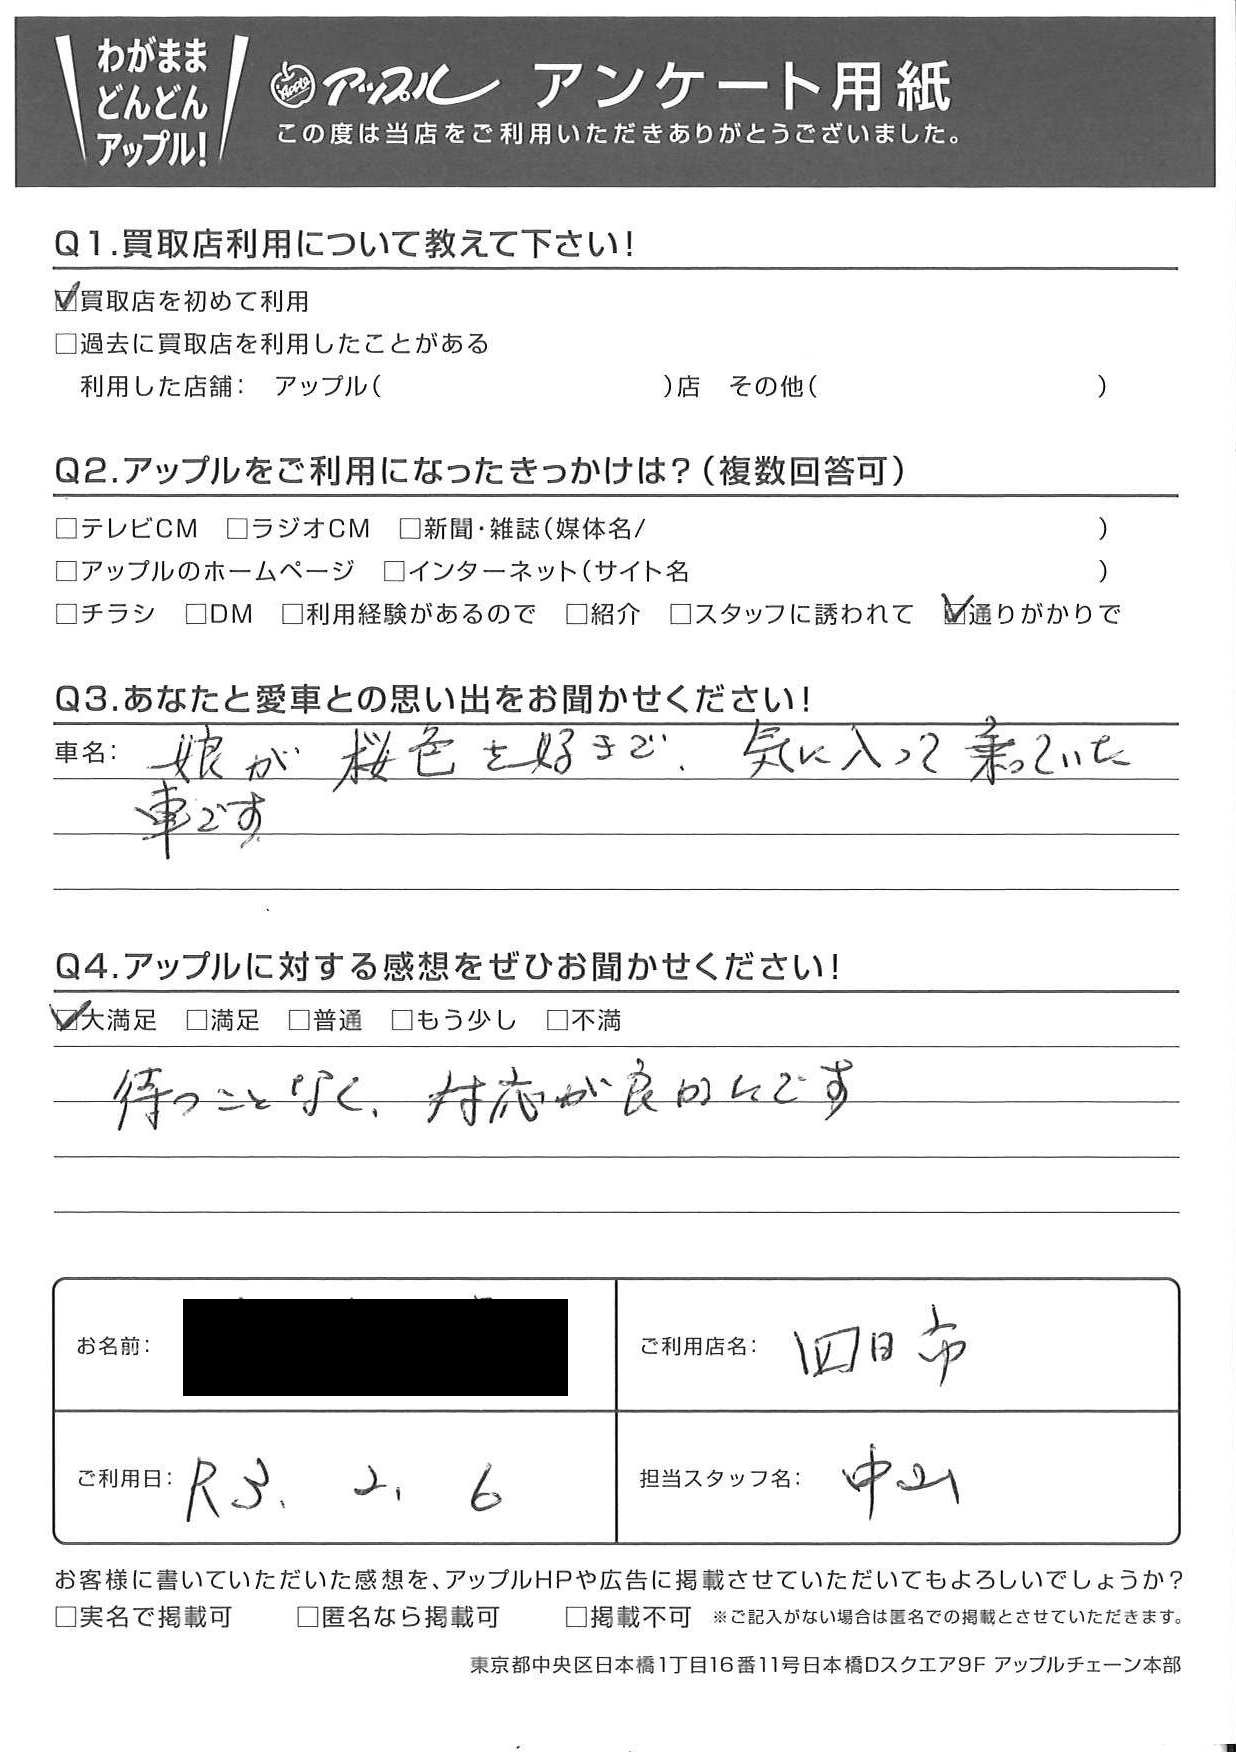 わがまま
どんどん
アップル!
Apple アップル アンケート用紙
この度は当店をご利用いただきありがとうございました。
Q1.買取店利用について教えて下さい!
☑買取店を初めて利用
□過去に買取店を利用したことがある
利用した店舗: アップル( )店 その他( )
Q2.アップルをご利用になったきっかけは?(複数回答可)
□テレビCM □ラジオCM □新聞・雑誌(媒体名/ )
□アップルのホームページ □インターネット(サイト名 )
□チラシ □DM □利用経験があるので □紹介 □スタッフに誘われて ☑通りがかりで
Q3.あなたと愛車との思い出をお聞かせください!
車名: 娘が桜色を好きで、気に入って乗っていた
車です
Q4.アップルに対する感想をぜひお聞かせください!
☑大満足 □満足 □普通 □もう少し □不満
待つことなく、対応が良かったです
お名前:
ご利用店名: 四日市
ご利用日: R3. 2. 6
担当スタッフ名: 中山
お客様に書いていただいた感想を、アップルHPや広告に掲載させていただいてもよろしいでしょうか?
□実名で掲載可 □匿名なら掲載可 □掲載不可 ※ご記入がない場合は匿名での掲載とさせていただきます。
東京都中央区日本橋1丁目16番11号日本橋Dスクエア9F アップルチェーン本部